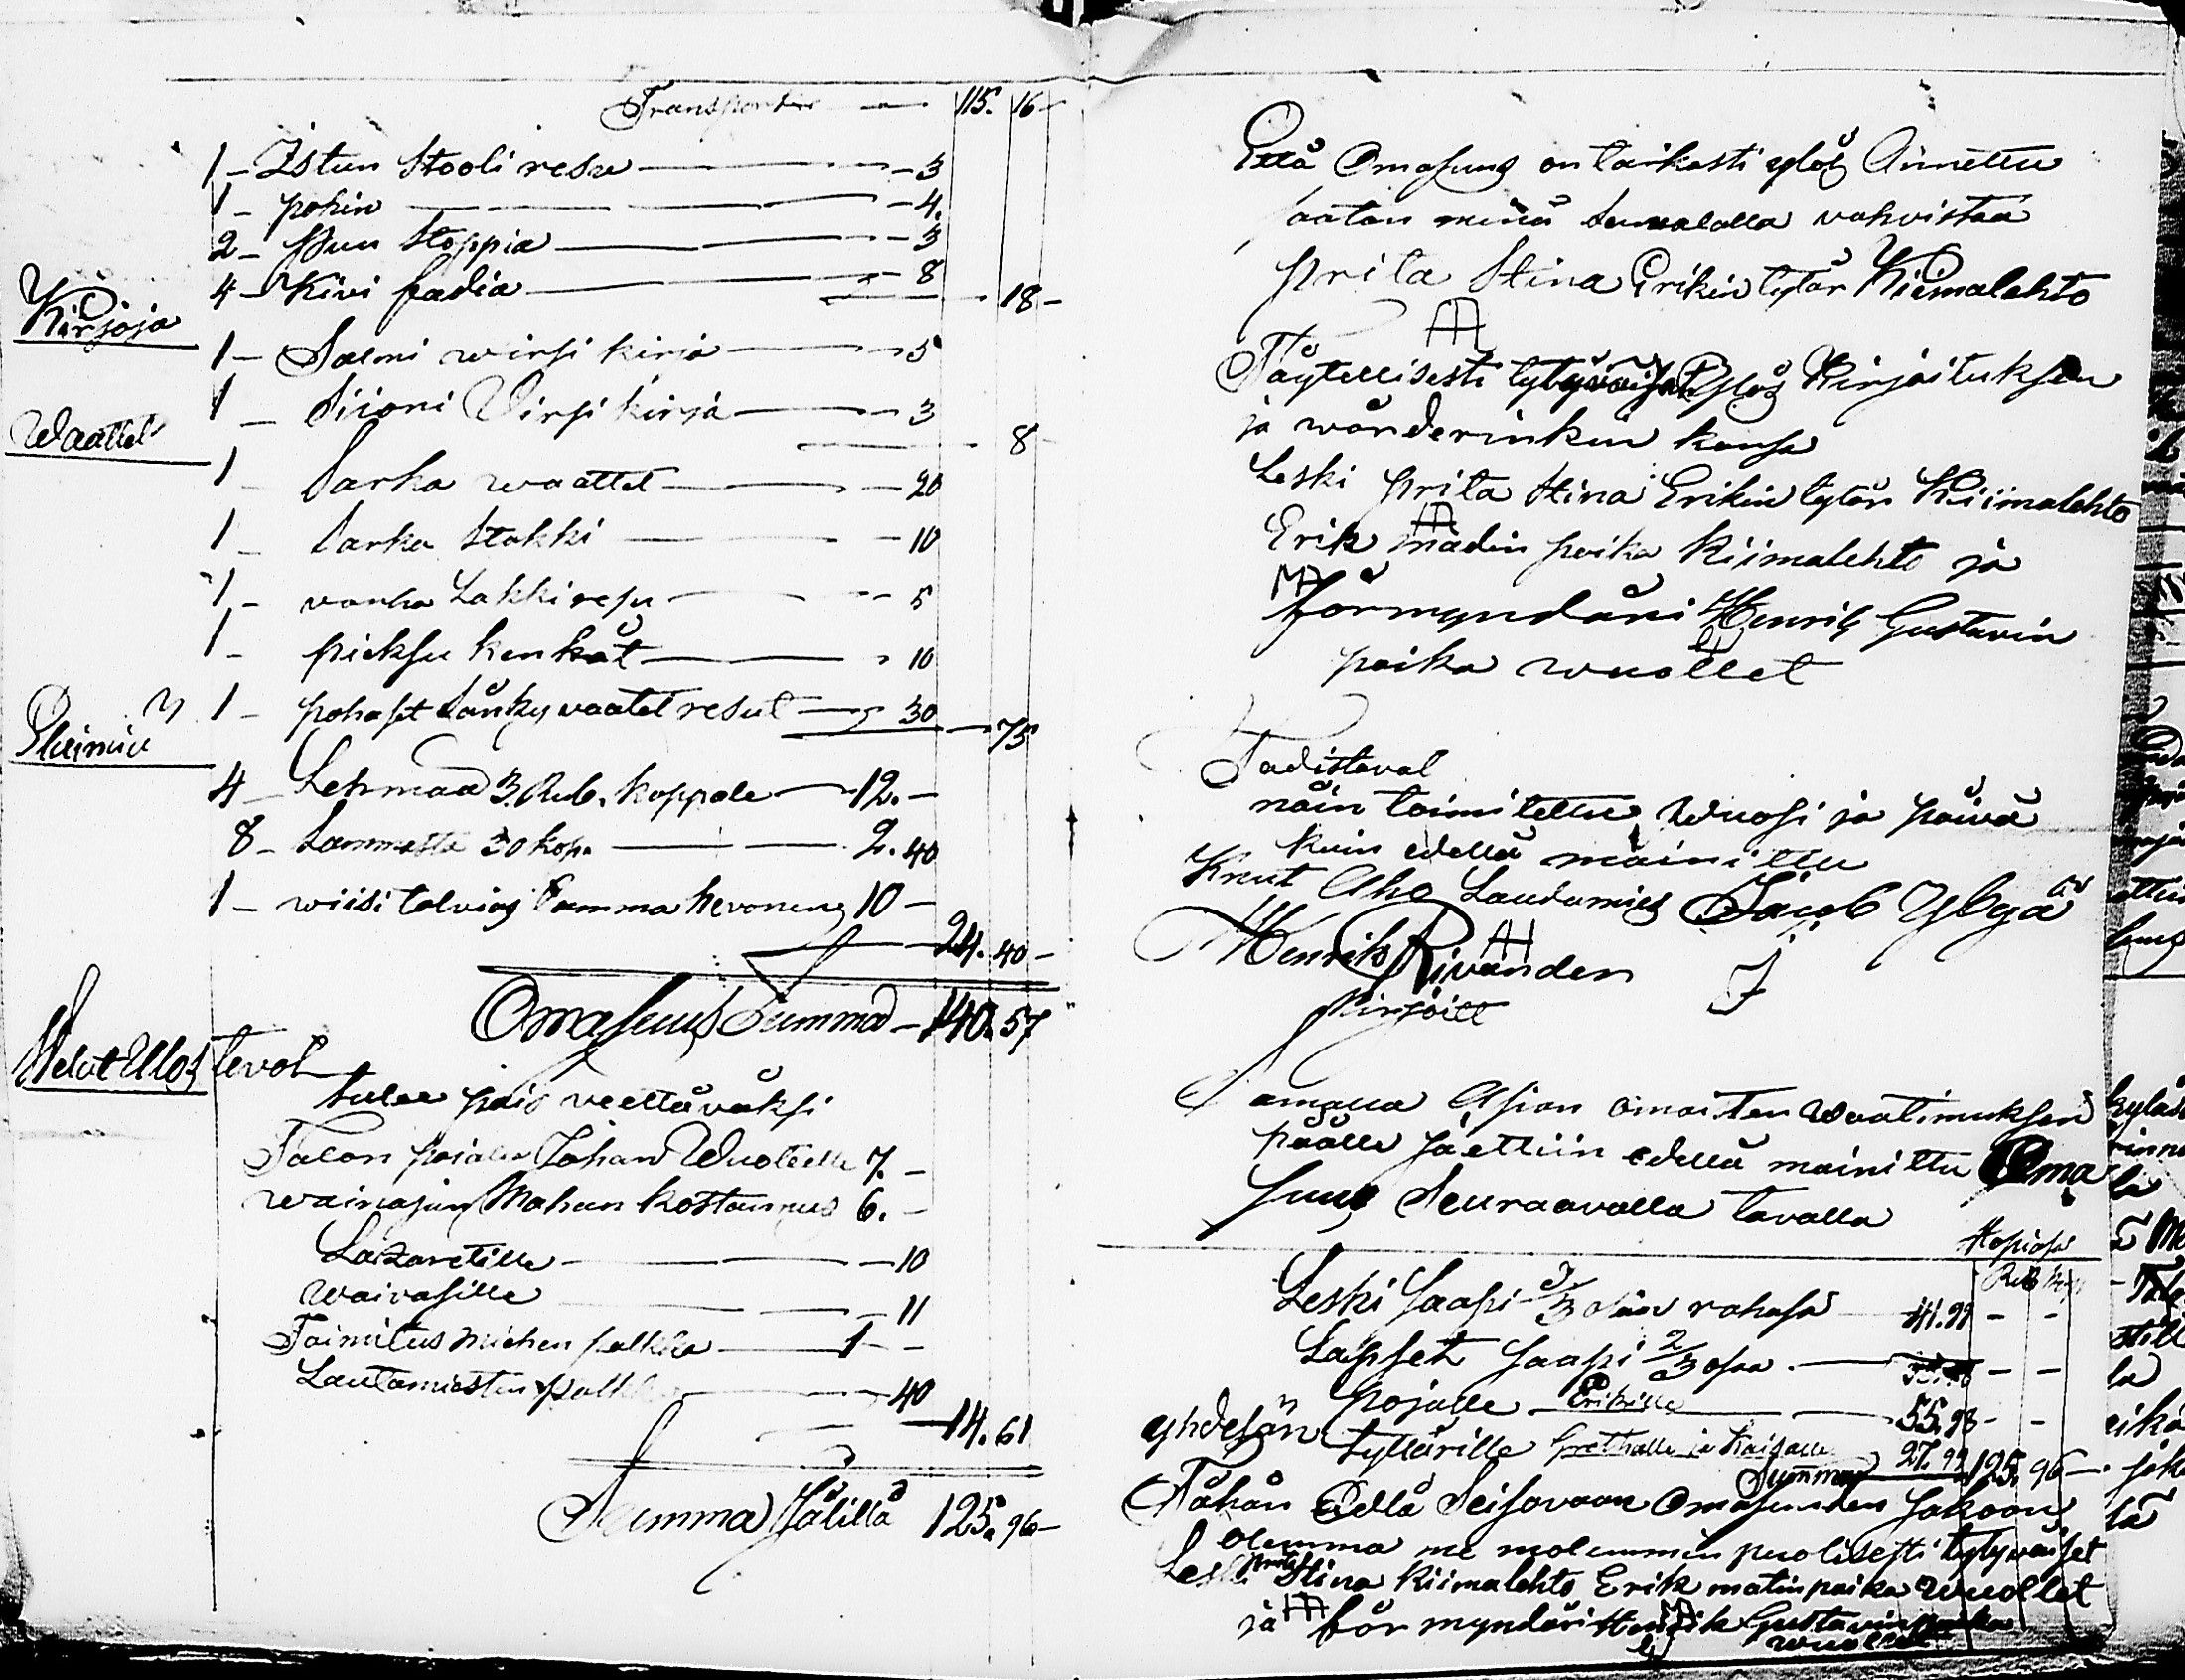 Transporteer — 115. 16 -
1 - Istun Stooli resu — 3
1 - pohin — 4.
2 - Puu Stoppia — 3
4 - Kivi fadia — 8 — 18 -
Kirjoja
1 - Salmi wirsi kirja — 5
1 - Siioni Virsi kirja — 3
8
Waattet
1 - Sarka waattet — 20
1 - Sarka Stakki — 10
1 - vanha Lakki resu — 5
1 - pieksu kenkät — 10
1 - pohaset Sänky vaatet resut — 30 — 75
Eläimiä
4 - Lehmää 3. Rub. kappale — 12. -
8 - Lammasta 30 kop. — 2. 40
1 - wiisi talvias Tamma hevonen 10 -
24. 40 -
Omasuus Summa — 140. 57
Welat Ulos tevat
tulee pois veettäväksi
Talon pojalle Johan Wuolelle 7. -
wainajan Mahan kostannus 6. -
Lazaretille — 10
waivasille — 11
Toimitus miehen palkka — 1 -
Lautamiesten palkka — 40
14. 61
Summa Jälillä 125. 96 -
Että Omasuus on tarkasti ylös Annettu
saatan minä valalla vahvistaa
prita Stina Erikin tytär Kiimalehto
Täytellisesti tytyväiset Ylös Kirjoituksen
ja wärderinkin kansa
Leski prita Stina Erikin tytär Kiimalehto
Erik madin poika Kiimalehto ja
förmyndäri Henrik Gustavin
poika wuollet
Tadistavat
näin toimitettu Wuosi ja päivä
kuin edellä mainittu
Knut Aho Laudamies Jacob Ylyjä
Henrik Rivanden
Kirjoitt
Samalla Asian omaisten waatimuksen
päälle jaettiin edellä mainittu Oma
suus Seuraavalla tavalla
Hopiasa
Rub kop
Leski saapi 1/3 osan rahasa — 41. 99 - -
Lapset saapi 2/3 osaa — - -
pojalle Erikille — 55. 98 - -
yhdesän tyttärille Grethalle ja Kaisalle 27. 99
Summa 125. 96 -
Tähän Edellä Seisovaan Omasuuden Jakoon
olemma me molemmin puolisesti tytyväiset
Leski prita Stina Kiimalehto Erik matin poika wuollet
ja för myndäri Henrik Gustavin poika
wuollet